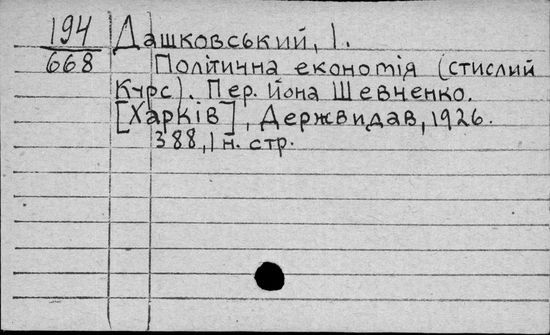 194
668
Дашковський, І.
Політична економія (стислий
курс). Пер. Йона Шевченко.
[Харків], Держвидав, 1926.
388, 1 н. стр.